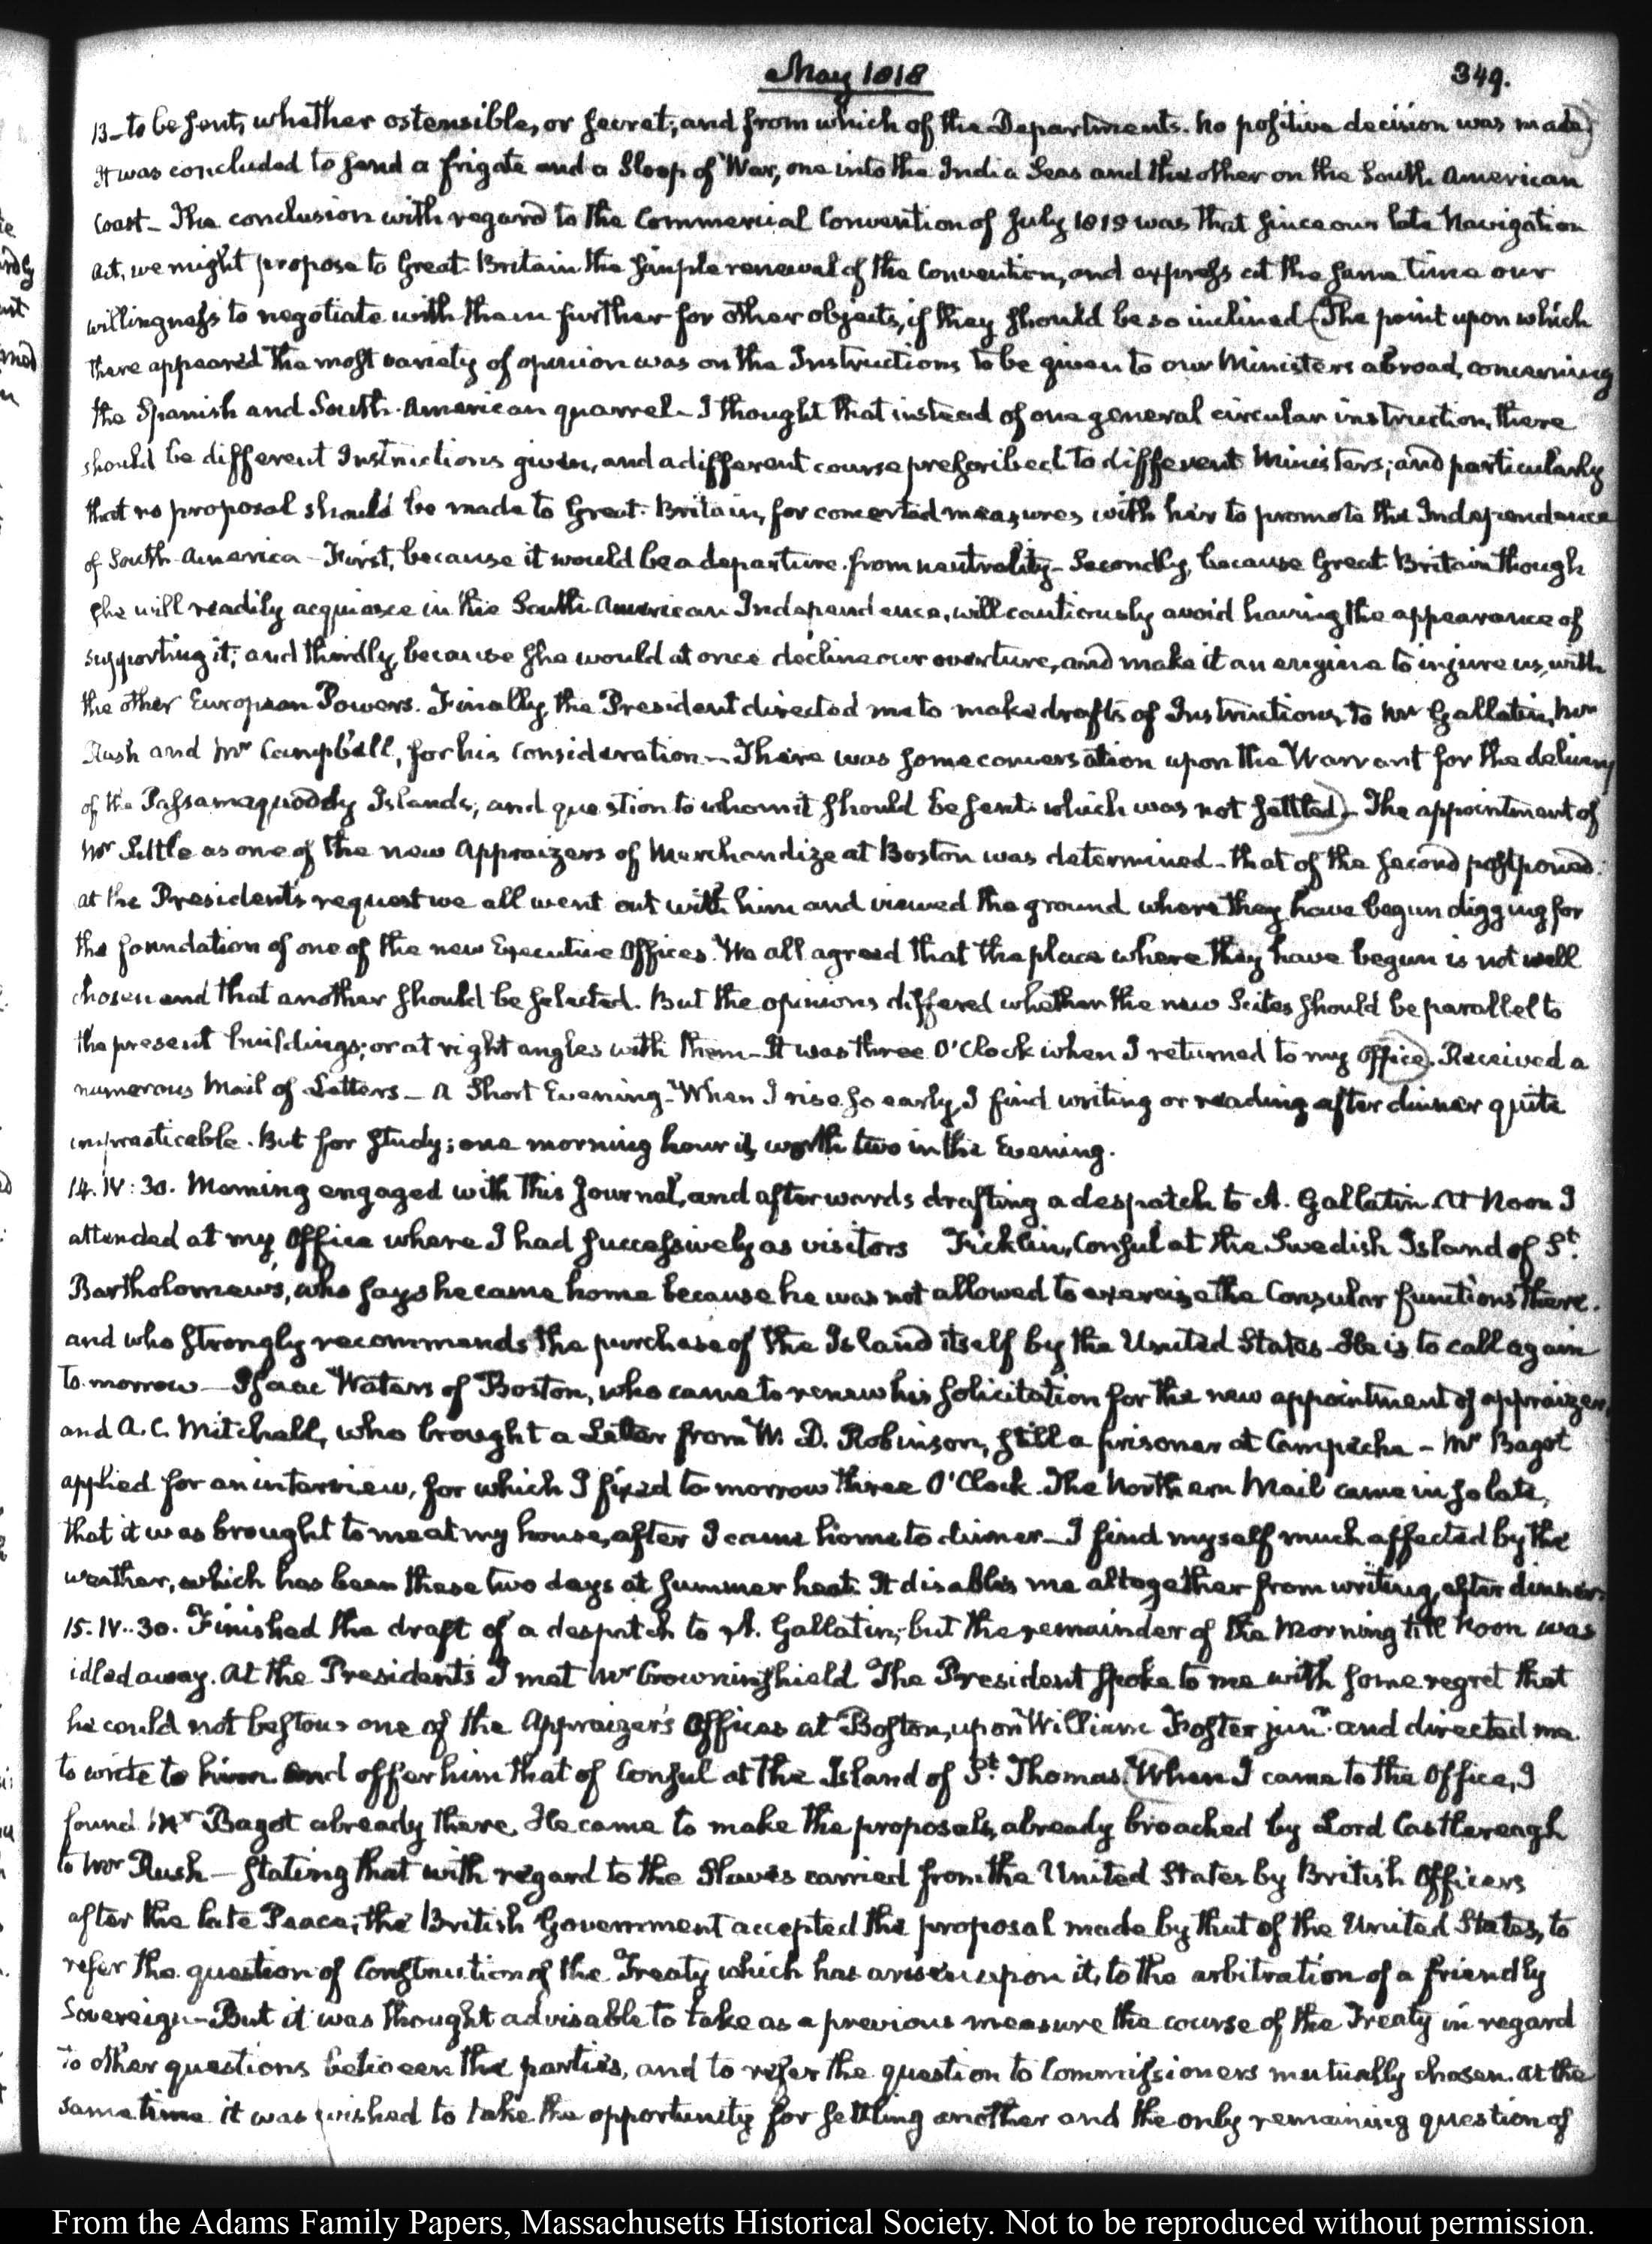 May 1818
349.
13- to be sent, whether ostensible, or secret, and from which of the Departments. No positive decision was made)
It was concluded to send a frigate and a Sloop of War, one into the India Seas and the other on the South American
Coast- The conclusion with regard to the Commercial Convention of July 1815 was that since our late Navigation
Act, we might propose to Great-Britain the simple renewal of the Convention, and express at the same time our
willingness to negotiate with them further for other objects, if they should be so inclined- (The point upon which
there appeared the most variety of opinion was on the Instructions to be given to our Ministers abroad, concerning
the Spanish and South-American quarrel- I thought that instead of one general circular instruction, there
should be different Instructions given, and a different course prescribed to different Ministers; and particularly
that no proposal should be made to Great-Britain, for concerted measures with her to promote the Independence
of South-America- First, because it would be a departure from neutrality- Secondly, because Great-Britain though
she will readily acquiesce in the South-American Independence, will cautiously avoid having the appearance of
supporting it; and thirdly, because she would at once decline our overture, and make it an engine to injure us, with
the other European Powers. Finally, the President directed me to make drafts of Instructions, to Mr Gallatin, Mr
Rush and Mr Campbell, for his consideration- There was some conversation upon the Warrant for the delivery
of the Passamaquoddy Islands; and question to whom it should be sent. which was not settled)- The appointment of
Mr Little as one of the new Appraizers of Merchandize at Boston was determined- that of the second postponed.
at the President's request we all went out with him and viewed the ground where they have begun digging for
the foundation of one of the new Executive Offices. We all agreed that the place where they have begun is not well
chosen and that another should be selected. But the opinions differed whether the new Scites should be parallel to
the present buildings, or at right angles with them- It was three O'Clock when I returned to my Office). Received a
numerous Mail of Letters- A Short Evening- When I rise so early, I find writing or reading after dinner quite
impracticable. But for study; one morning hour is worth two in the Evening.
14. IV:30. Morning engaged with this Journal, and afterwards drafting a despatch to A. Gallatin. At Noon I
attended at my Office where I had successively as visitors Ficklin, Consul at the Swedish Island of St.
Bartholomews, who says he came home because he was not allowed to exercise the Consular functions there.
and who strongly recommends the purchase of the Island itself by the United States- He is to call again
to-morrow- Isaac Waters of Boston, who came to renew his solicitation for the new appointment of appraizer,
and A. C. Mitchell, who brought a Letter from W. D. Robinson, still a prisoner at Campeche- Mr Bagot
applied for an interview, for which I fixed to-morrow three O'Clock. The Northern Mail came in so late,
that it was brought to me at my house, after I came home to dinner- I find myself much affected by the
weather, which has been these two days at summer heat. It disables me altogether from writing, after dinner.
15. IV:30. Finished the draft of a despatch to A. Gallatin; but the remainder of the Morning till Noon was
idled away. At the President's I met Mr Crowninshield The President spoke to me with some regret that
he could not bestow one of the Appraizer's Offices at Boston, upon William Foster junr. and directed me
to write to him and offer him that of Consul at the Island of St. Thomas. (When I came to the Office, I
found Mr Bagot already there. He came to make the proposals, already broached by Lord Castlereagh
to Mr Rush- stating that with regard to the Slaves carried from the United States by British Officers
after the late Peace, the British Government accepted the proposal made by that of the United States, to
refer the question of Construction of the Treaty which has arisen upon it, to the arbitration of a friendly
Sovereign- But it was thought advisable to take as a previous measure the course of the Treaty in regard
to other questions between the parties, and to refer the question to Commissioners mutually chosen. At the
same time it was wished to take the opportunity for settling another and the only remaining question of
From the Adams Family Papers, Massachusetts Historical Society. Not to be reproduced without permission.